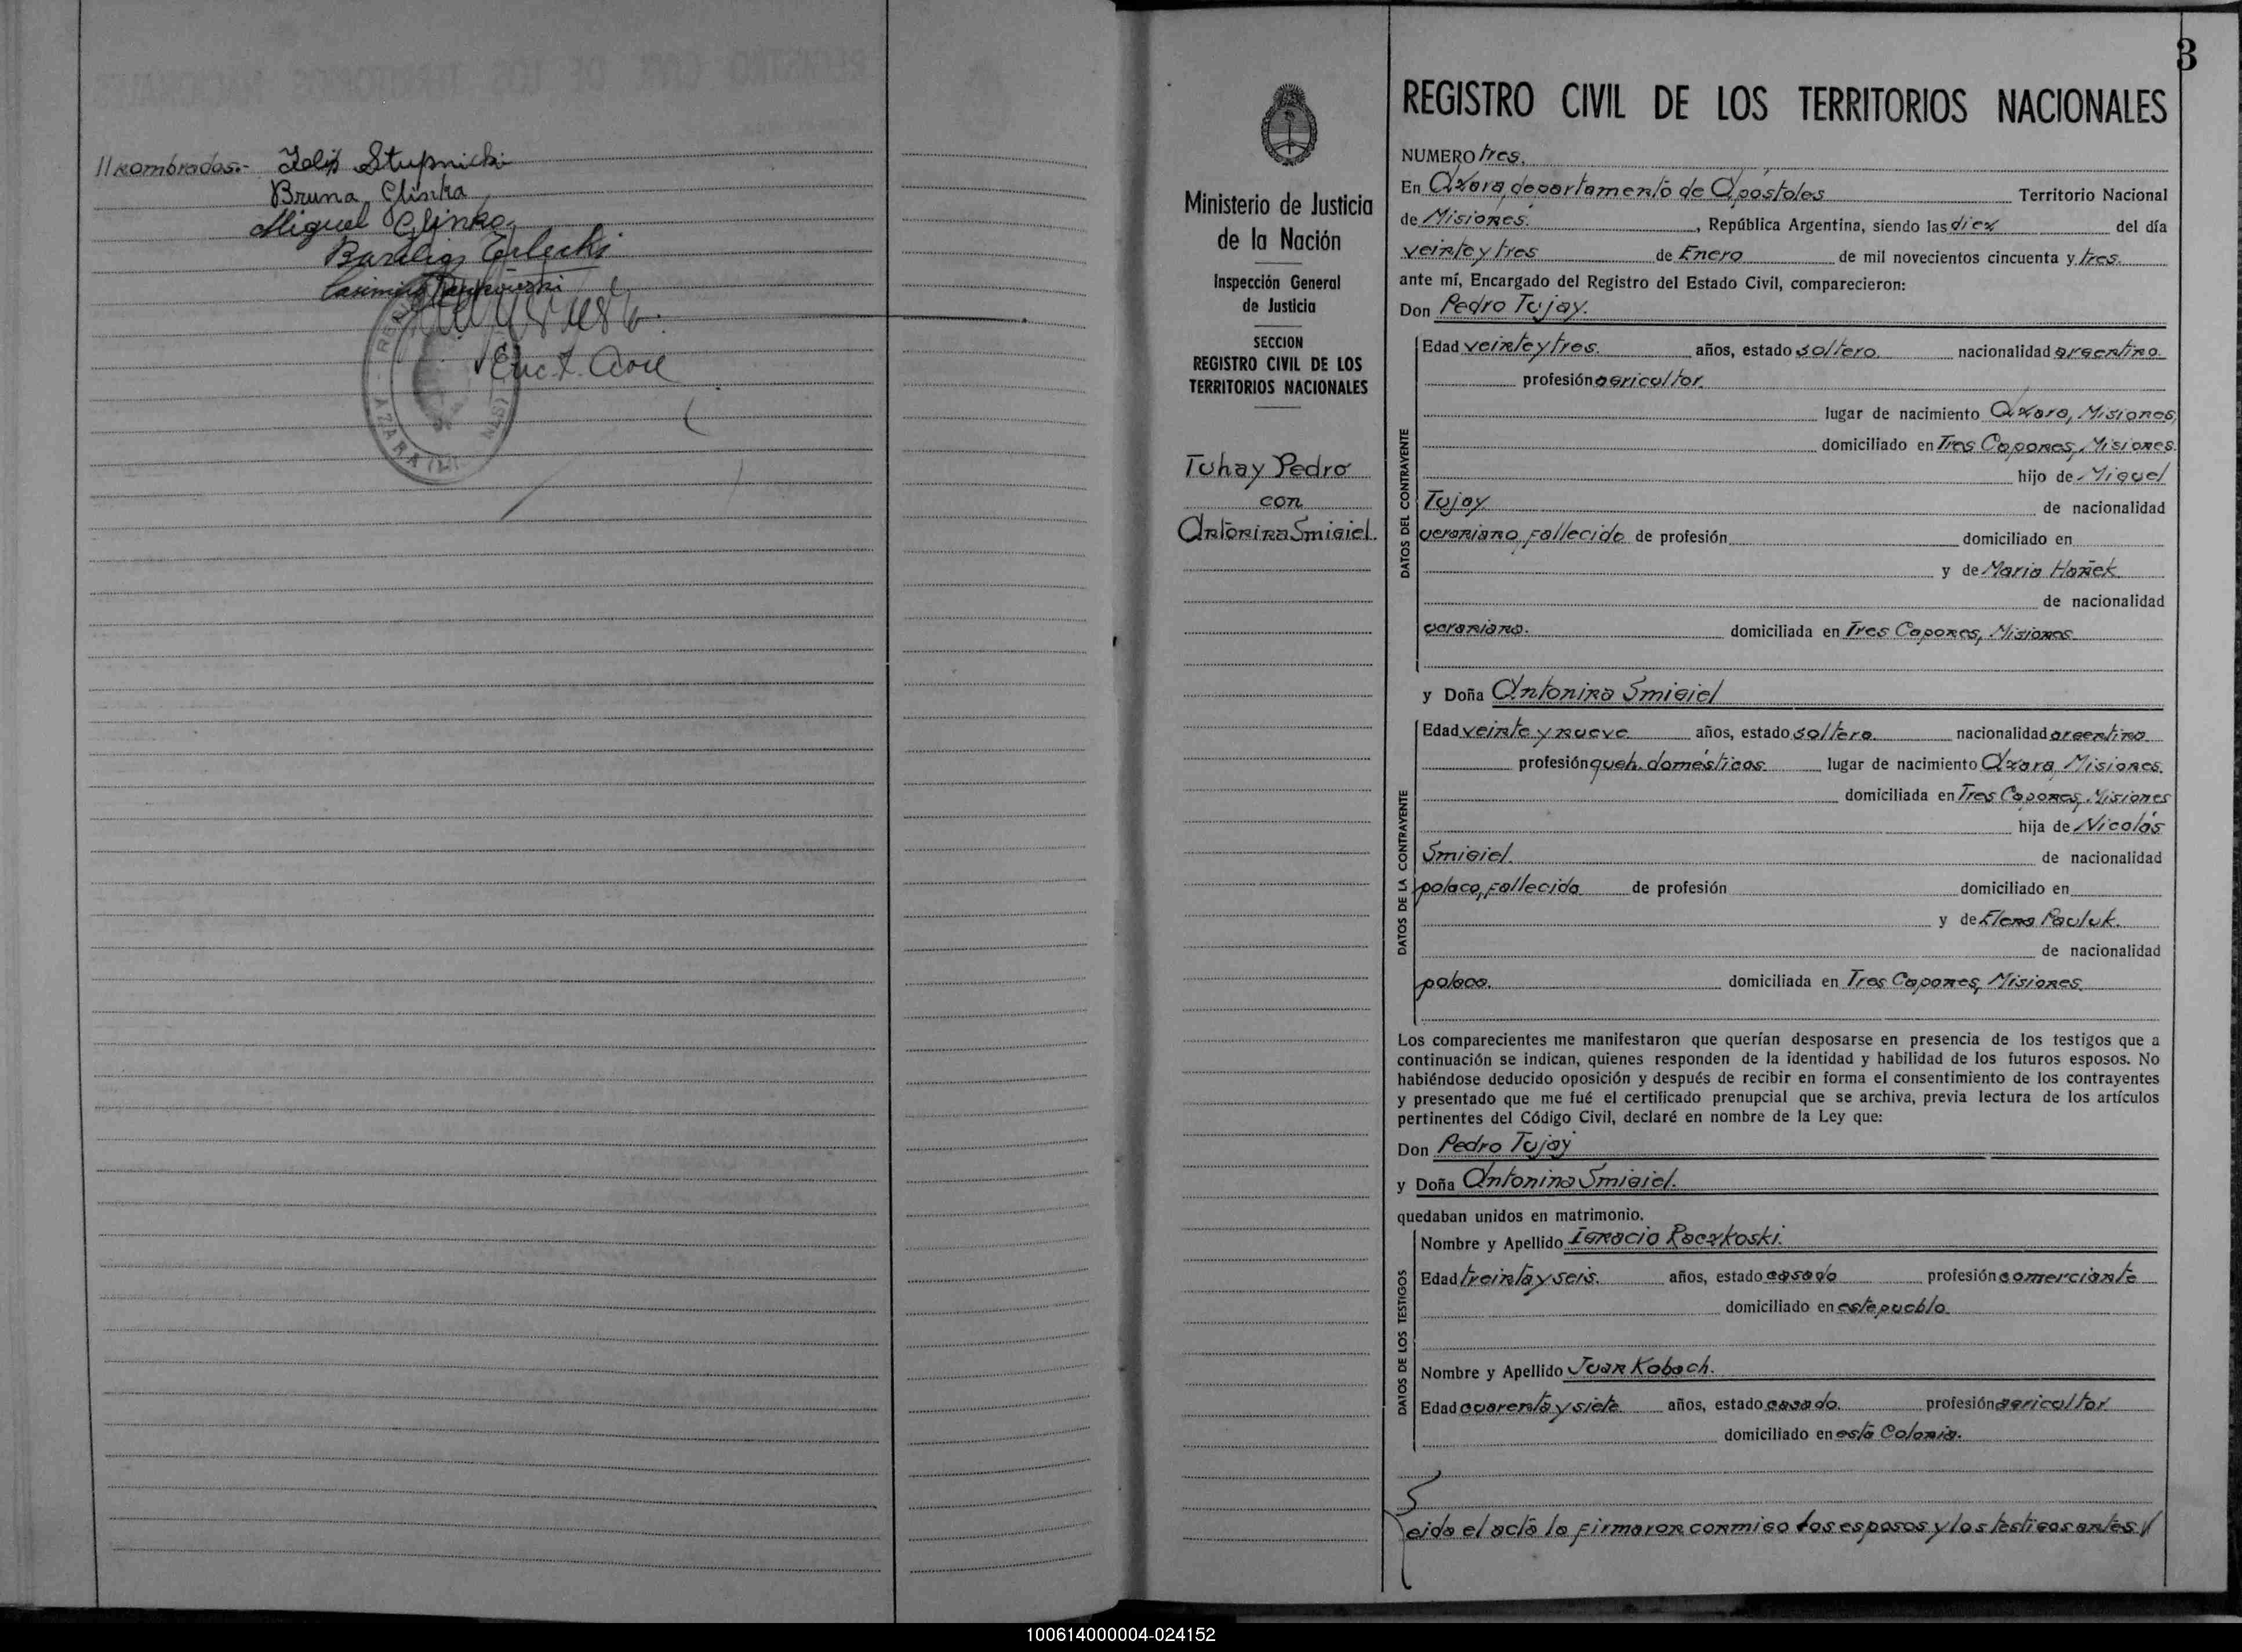 //nombrados.- Felix Stupnicki
Bruna Glinka
Miguel Glinka
Basilio Erlecki
AZARA
3
REGISTRO CIVIL DE LOS TERRITORIOS NACIONALES
Ministerio de Justicia
de la Nación
Inspección General
de Justicia
SECCION
REGISTRO CIVIL DE LOS
TERRITORIOS NACIONALES
Tuhay Pedro
con
Antonina Smigiel.
NUMERO tres.
En Azara, departamento de Apóstoles Territorio Nacional
de Misiones. , República Argentina, siendo las diez del día
veinte y tres de Enero de mil novecientos cincuenta y tres.
ante mí, Encargado del Registro del Estado Civil, comparecieron:
Don Pedro Tujay.
DATOS DEL CONTRAYENTE
Edad veinte y tres. años, estado soltero. nacionalidad argentino.
profesión agricultor.
lugar de nacimiento Azara, Misiones,
domiciliado en Tres Capones, Misiones.
hijo de Miguel
Tujay. de nacionalidad
ucraniano, fallecido de profesión domiciliado en
y de Maria Hañek.
de nacionalidad
ucraniana. domiciliada en Tres Capones, Misiones.
y Doña Antonina Smigiel
DATOS DE LA CONTRAYENTE
Edad veinte y nueve años, estado soltera. nacionalidad argentina
profesión queh. domésticos. lugar de nacimiento Azara, Misiones.
domiciliada en Tres Capones, Misiones
hija de Nicolás
Smigiel. de nacionalidad
polaco, fallecido de profesión domiciliado en
y de Elena Pauluk.
de nacionalidad
polaca. domiciliada en Tres Capones, Misiones.
Los comparecientes me manifestaron que querían desposarse en presencia de los testigos que a
continuación se indican, quienes responden de la identidad y habilidad de los futuros esposos. No
habiéndose deducido oposición y después de recibir en forma el consentimiento de los contrayentes
y presentado que me fué el certificado prenupcial que se archiva, previa lectura de los artículos
pertinentes del Código Civil, declaré en nombre de la Ley que:
Don Pedro Tujay
y Doña Antonina Smigiel.
quedaban unidos en matrimonio.
DATOS DE LOS TESTIGOS
Nombre y Apellido Ignacio Raczkoski.
Edad treinta y seis. años, estado casado profesión comerciante
domiciliado en este pueblo.
Nombre y Apellido Juan Kobach.
Edad cuarenta y siete años, estado casado. profesión agricultor
domiciliado en esta Colonia.
Leida el acta la firmaron conmigo los esposos y los testigos antes//
100614000004-024152